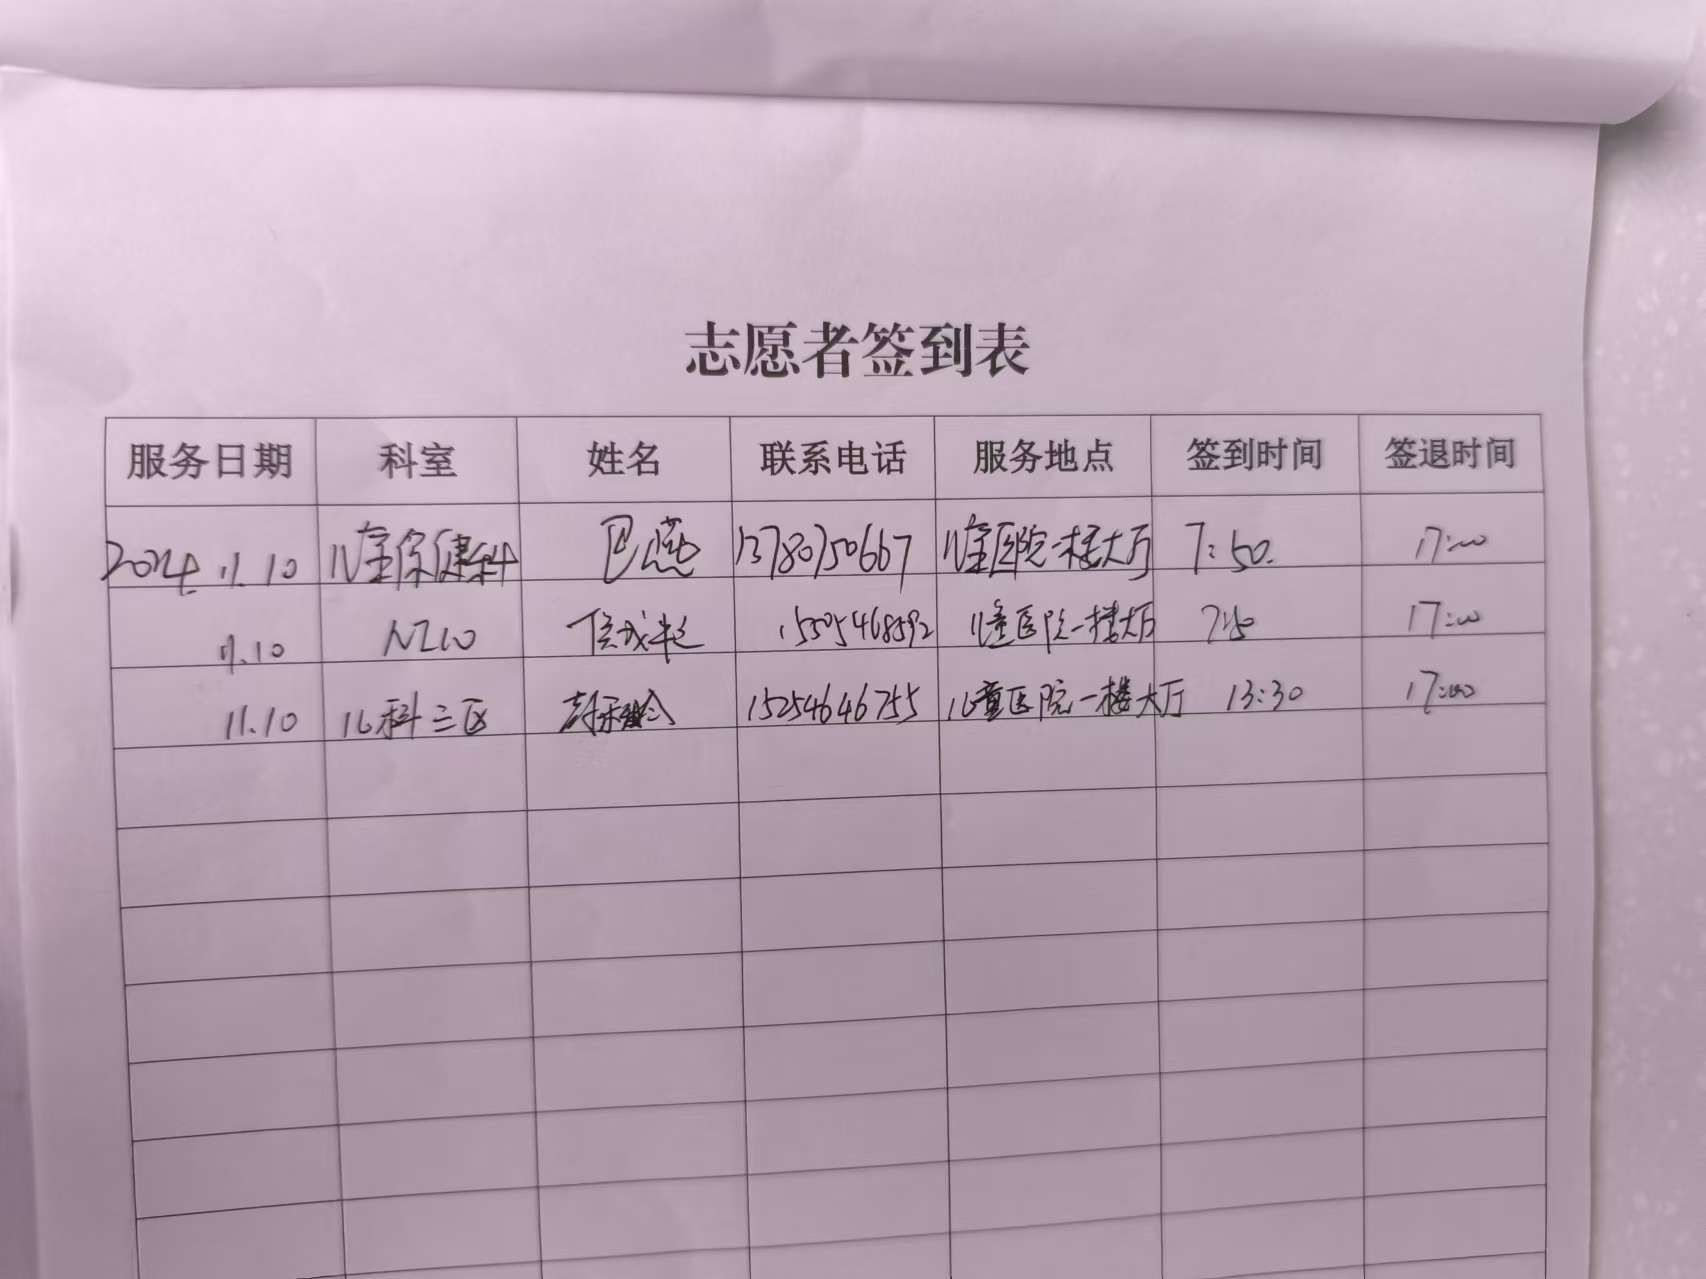 志愿者签到表
服务日期 科室 姓名 联系电话 服务地点 签到时间 签退时间
2024.11.10 儿童保健科 巴燕 13780750667 儿童医院一楼大厅 7:50. 17:00
11.10 NICU 15505468592 儿童医院一楼大厅 7:50 17:00
11.10 儿科三区 15254646755 儿童医院一楼大厅 13:30 17:00